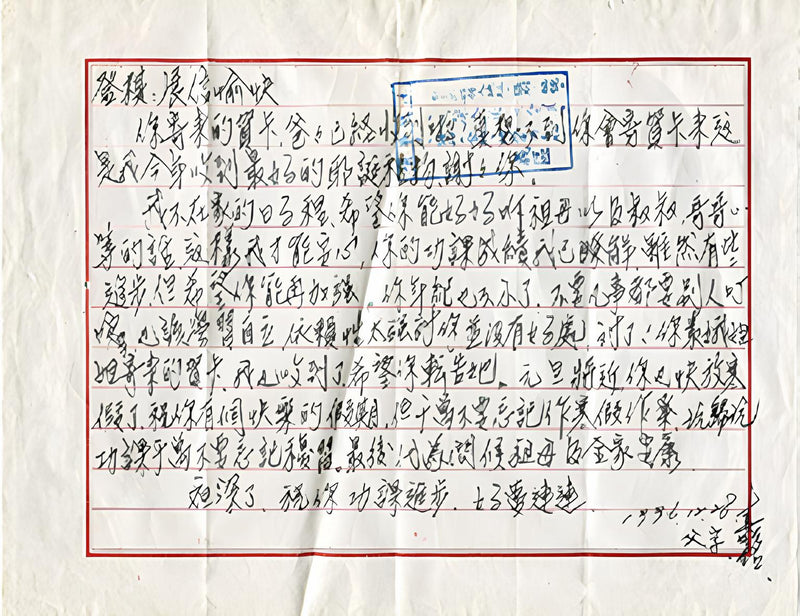 展信愉快
你寄來的賀卡,爸爸已經收到,真想不到你會寄賀卡來,這
是我今年收到最好的耶誕禮物,謝謝你。
我不在家的日子裡,希望你能好好聽祖母以及叔叔,哥哥
等的話,這樣我才能安心,你的功課成績我已瞭解,雖然有些
進步,但希望你能再加強。你年齡也不小了,不要凡事都要別人叮
也該學習自立,依賴性太強對你並沒有好處,對了!你
寄來的賀卡,我也收到了,希望你轉告她。元旦將近你也快放寒
假了,祝你有個快樂的假期,但千萬不要忘記作寒假作業,玩歸玩
功課千萬不要忘記複習。最後代為問候祖母及全家安康
夜深了,祝你功課進步,好夢連連
1996.12.28
父字